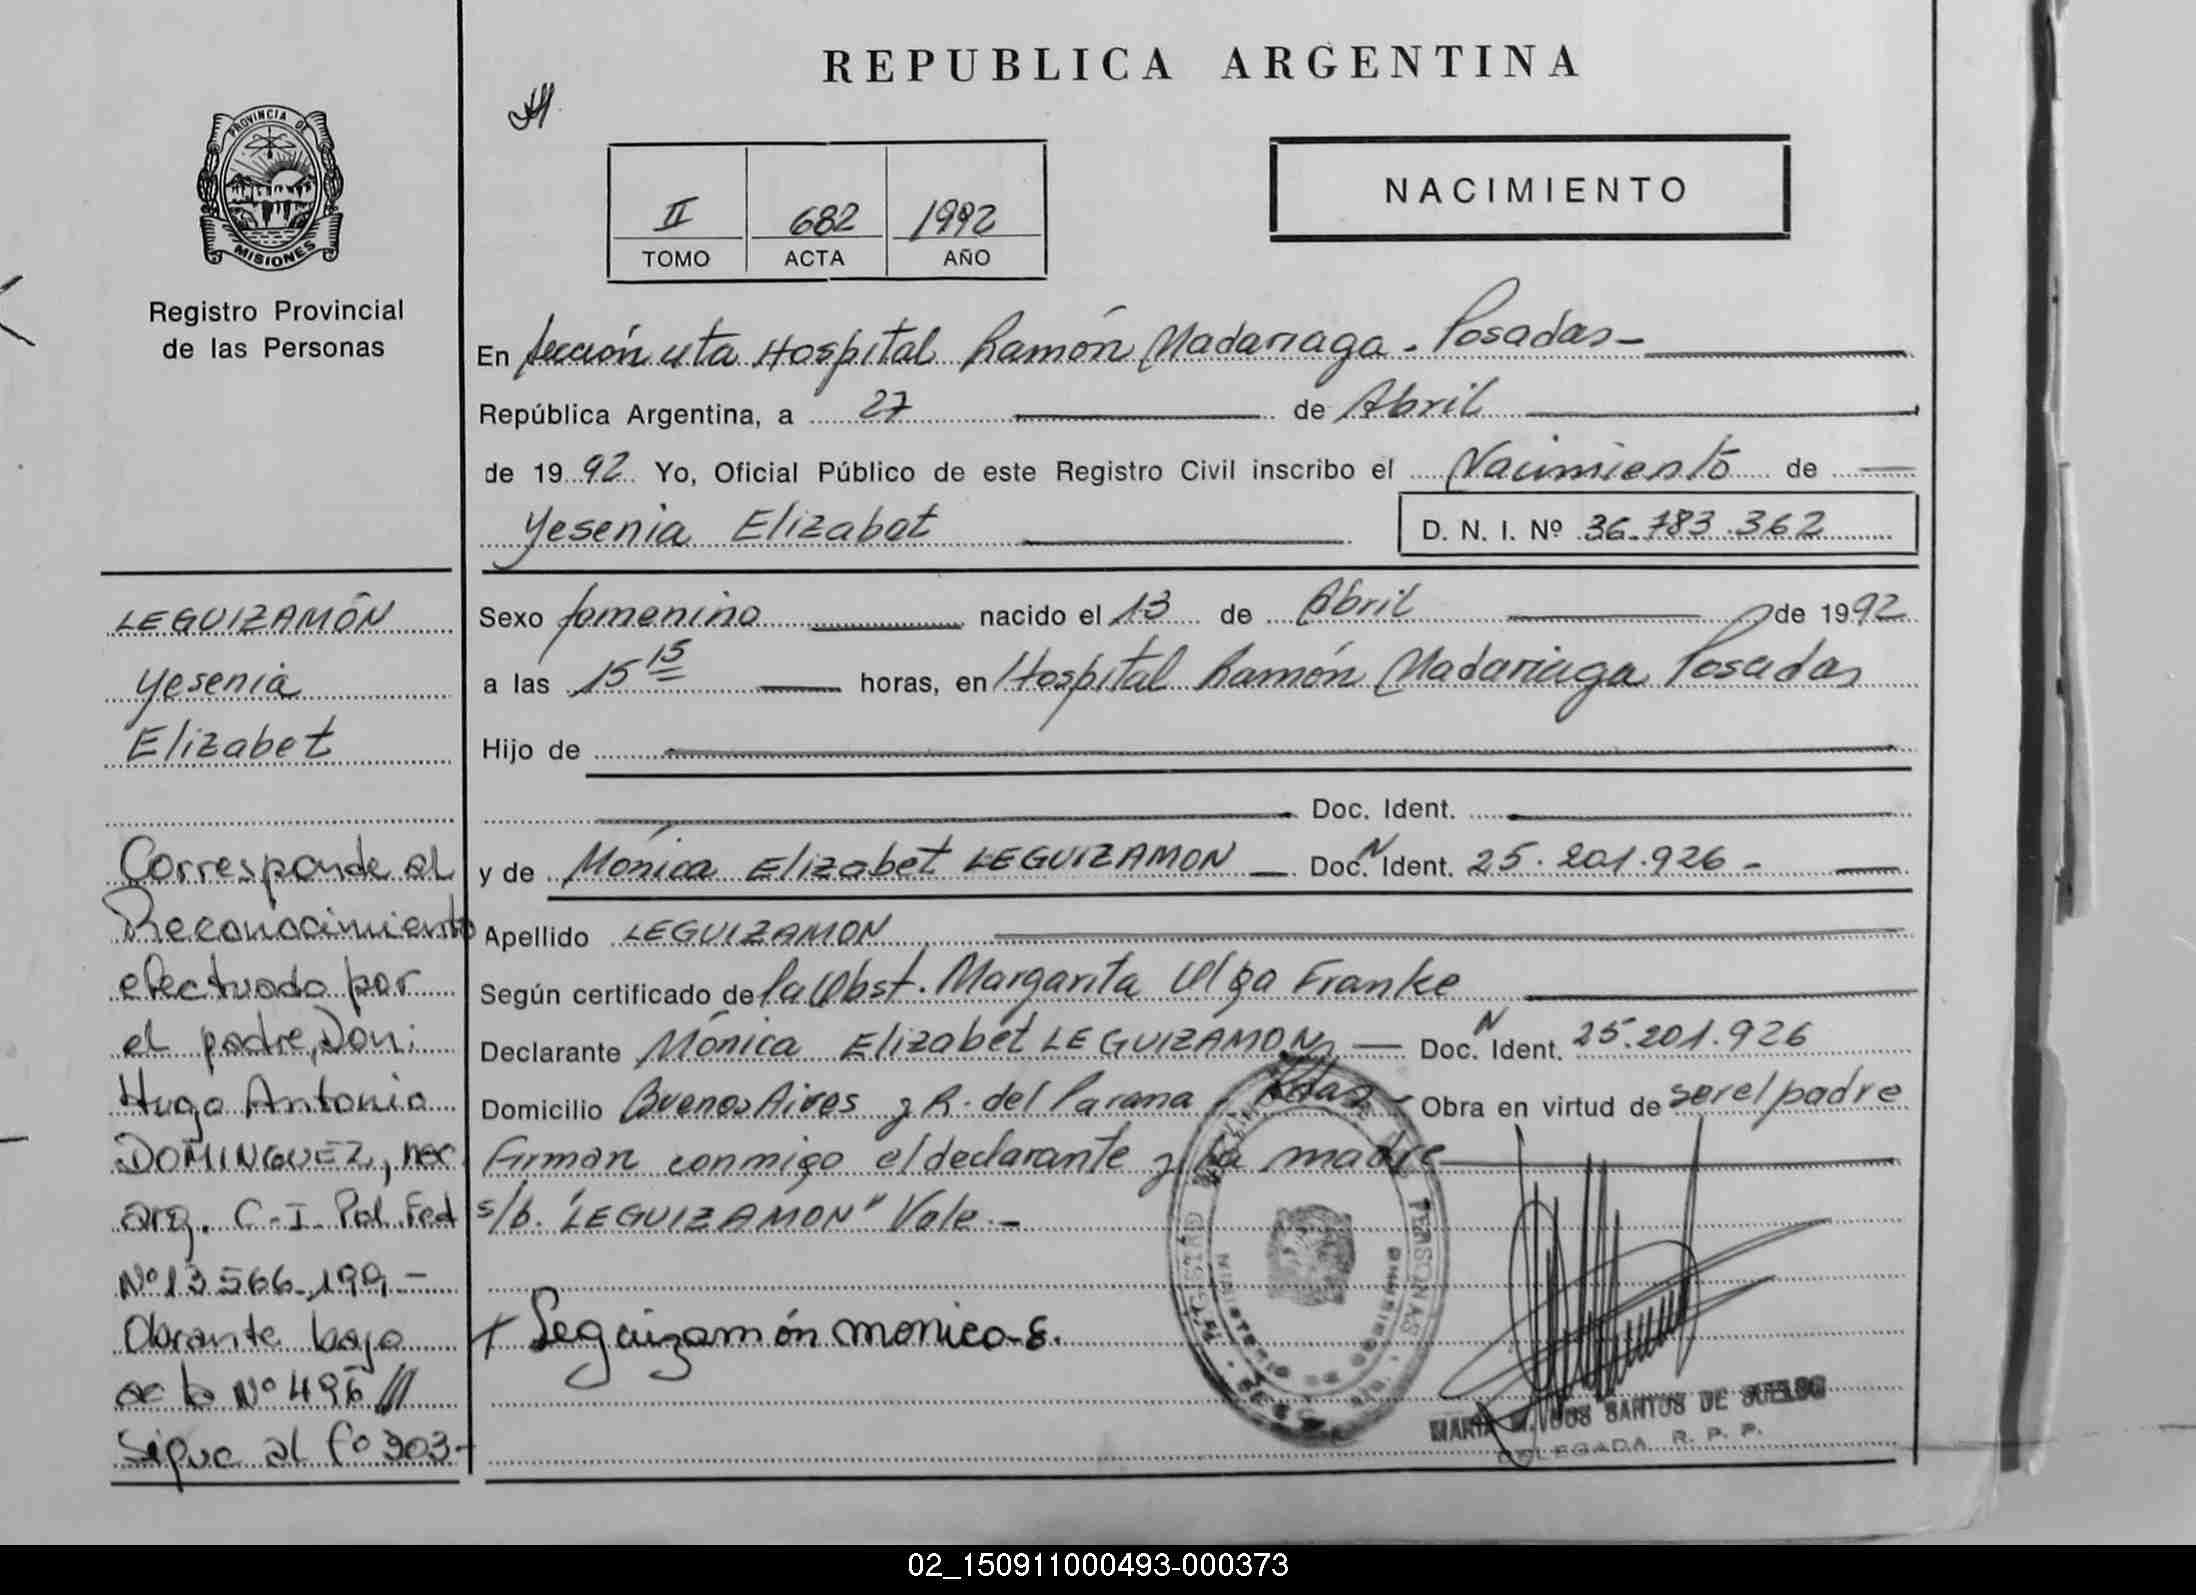 REPUBLICA ARGENTINA
PROVINCIA DE
MISIONES
Registro Provincial
de las Personas
II 682 1992
TOMO ACTA AÑO
NACIMIENTO
En Sección 4ta Hospital Ramón Madariaga - Posadas -
República Argentina, a 27 de Abril
de 1992 Yo, Oficial Público de este Registro Civil inscribo el Nacimiento de
Yesenia Elizabet D. N. I. Nº 36.783.362
Sexo femenino nacido el 13 de Abril de 1992
a las 15 15 horas, en Hospital Ramón Madariaga Posadas
Hijo de
Doc. Ident.
y de Mónica Elizabet LEGUIZAMON Doc. N Ident. 25.201.926 -
Apellido LEGUIZAMON
Según certificado de la Obst. Margarita Olga Franke
Declarante Mónica Elizabet LEGUIZAMON Doc. N Ident. 25.201.926
Domicilio Buenos Aires y R. del Parana - Pdas - Obra en virtud de ser el padre
Firman conmigo el declarante y la madre
s/b. "LEGUIZAMON" Vale. -
+ Leguizamón monica E.
DELEGADA R. P. P.
LEGUIZAMÓN
Yesenia
Elizabet
Corresponde al
Reconocimiento
efectuado por
el padre, Don:
Hugo Antonio
DOMINGUEZ, nac.
arg. C.I. Pol. Fed
Nº 13.566.199, -
Obrante bajo
acta Nº 496 ///
Sigue al fº 303 -
02_150911000493-000373